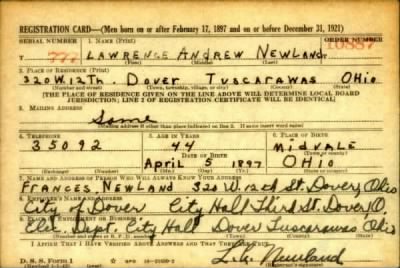 REGISTRATION CARD—(Men born on or after February 17, 1897 and on or before December 31, 1921)
SERIAL NUMBER 1. NAME (Print) ORDER NUMBER
LAWRENCE ANDREW NEWLAND 10887
(First) (Middle) (Last)
2. PLACE OF RESIDENCE (Print)
320 W. 12Th. DOVER TUSCARAWAS OHIO
(Number and street) (Town, township, village, or city) (County) (State)
[THE PLACE OF RESIDENCE GIVEN ON THE LINE ABOVE WILL DETERMINE LOCAL BOARD
JURISDICTION; LINE 2 OF REGISTRATION CERTIFICATE WILL BE IDENTICAL]
3. MAILING ADDRESS
Same
[Mailing address if other than place indicated on line 2. If same insert word same]
4. TELEPHONE 5. AGE IN YEARS 6. PLACE OF BIRTH
35092 44 MIDVALE
DATE OF BIRTH
APRIL 5 1897 OHIO
7. NAME AND ADDRESS OF PERSON WHO WILL ALWAYS KNOW YOUR ADDRESS
FRANCES NEWLAND 320 W. 12th St. Dover, Ohio
8. EMPLOYER'S NAME AND ADDRESS
City of Dover City Hall Third St. Dover, O.
9. PLACE OF EMPLOYMENT OR BUSINESS
Elec. Dept. City Hall Dover Tuscarawas Ohio
I AFFIRM THAT I HAVE VERIFIED ABOVE ANSWERS AND THAT THEY ARE TRUE.
D. S. S. Form 1 L. A. Newland